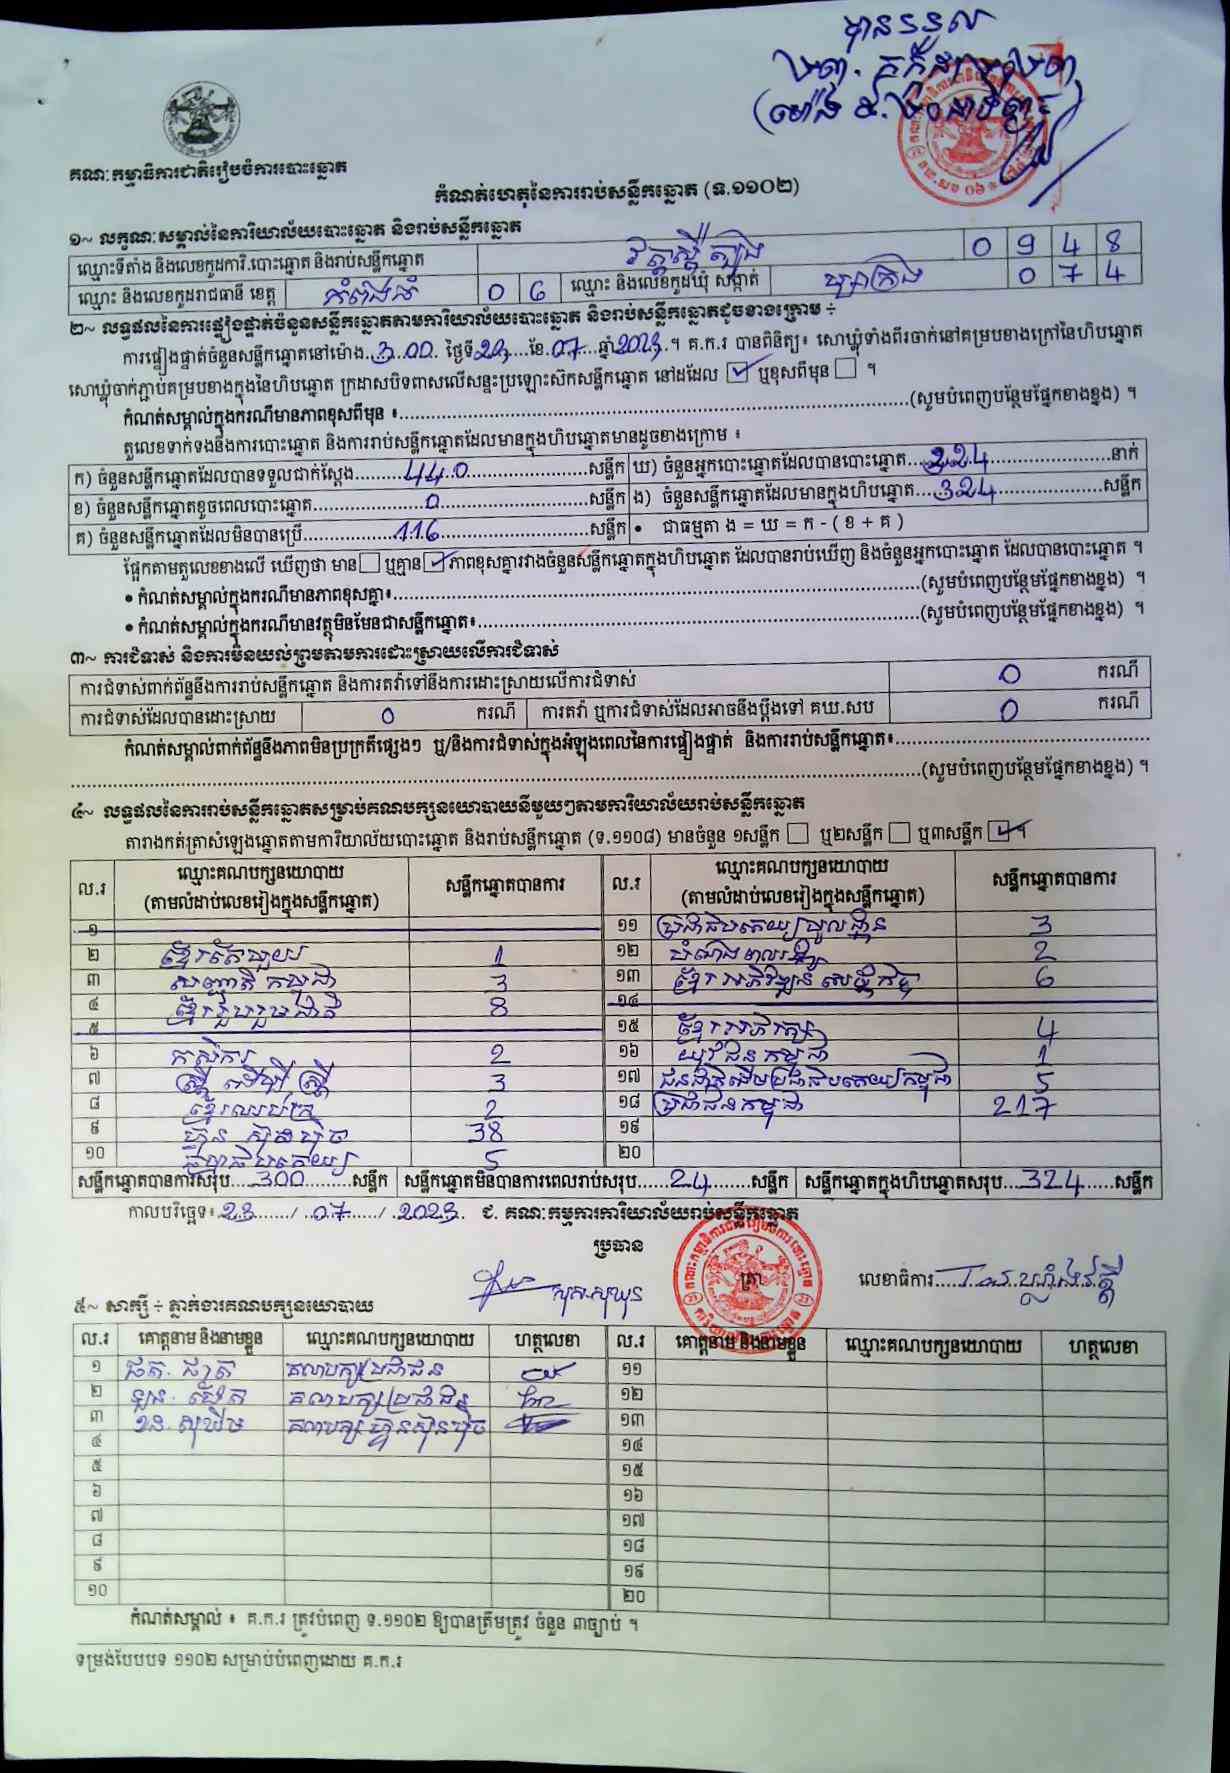 បានទទួល
គណៈកម្មាធិការជាតិរៀបចំការបោះឆ្នោត
កំណត់ហេតុនៃការរាប់សន្លឹកឆ្នោត (ទ.១១០២)
១~ លក្ខណៈសម្គាល់នៃការិយាល័យបោះឆ្នោត និងរាប់សន្លឹកឆ្នោត
ឈ្មោះទីតាំង និងលេខកូដការិ.បោះឆ្នោត និងរាប់សន្លឹកឆ្នោត 0 9 4 8
ឈ្មោះ និងលេខកូដរាជធានី ខេត្ត កំពង់ធំ 0 6 ឈ្មោះ និងលេខកូដឃុំ សង្កាត់ 0 7 4
២~ លទ្ធផលនៃការផ្ទៀងផ្ទាត់ចំនួនសន្លឹកឆ្នោតតាមការិយាល័យបោះឆ្នោត និងរាប់សន្លឹកឆ្នោតដូចខាងក្រោម ÷
ការផ្ទៀងផ្ទាត់ចំនួនសន្លឹកឆ្នោតនៅម៉ោង 3 00 ថ្ងៃទី 23 ខែ 07 ឆ្នាំ 2023 ។ គ.ក.រ បានពិនិត្យ៖ សោឃ្លុំទាំងពីរចាក់នៅគម្របខាងក្រៅនៃហិបឆ្នោត
សោឃ្លុំចាក់ភ្ជាប់គម្របខាងក្នុងនៃហិបឆ្នោត ក្រដាសបិទពាសលើសន្ទះប្រឡោះស៊កសន្លឹកឆ្នោត នៅដដែល ☑ ឬខុសពីមុន ☐ ។
កំណត់សម្គាល់ក្នុងករណីមានភាពខុសពីមុន ៖ (សូមបំពេញបន្ថែមផ្នែកខាងខ្នង) ។
តួលេខទាក់ទងនឹងការបោះឆ្នោត និងការរាប់សន្លឹកឆ្នោតដែលមានក្នុងហិបឆ្នោតមានដូចខាងក្រោម ៖
ក) ចំនួនសន្លឹកឆ្នោតដែលបានទទួលជាក់ស្តែង 440 សន្លឹក ឃ) ចំនួនអ្នកបោះឆ្នោតដែលបានបោះឆ្នោត 324 នាក់
ខ) ចំនួនសន្លឹកឆ្នោតខូចពេលបោះឆ្នោត 0 សន្លឹក ង) ចំនួនសន្លឹកឆ្នោតដែលមានក្នុងហិបឆ្នោត 324 សន្លឹក
គ) ចំនួនសន្លឹកឆ្នោតដែលមិនបានប្រើ 116 សន្លឹក • ជាធម្មតា ង = ឃ = ក - ( ខ + គ )
ផ្អែកតាមតួលេខខាងលើ ឃើញថា មាន ☐ ឬគ្មាន ☑ ភាពខុសគ្នារវាងចំនួនសន្លឹកឆ្នោតក្នុងហិបឆ្នោត ដែលបានរាប់ឃើញ និងចំនួនអ្នកបោះឆ្នោត ដែលបានបោះឆ្នោត ។
• កំណត់សម្គាល់ក្នុងករណីមានភាពខុសគ្នា៖ (សូមបំពេញបន្ថែមផ្នែកខាងខ្នង) ។
• កំណត់សម្គាល់ក្នុងករណីមានវត្ថុមិនមែនជាសន្លឹកឆ្នោត៖ (សូមបំពេញបន្ថែមផ្នែកខាងខ្នង) ។
៣~ ការជំទាស់ និងការមិនយល់ព្រមតាមការដោះស្រាយលើការជំទាស់
ការជំទាស់ពាក់ព័ន្ធនឹងការរាប់សន្លឹកឆ្នោត និងការតវ៉ាទៅនឹងការដោះស្រាយលើការជំទាស់ 0 ករណី
ការជំទាស់ដែលបានដោះស្រាយ 0 ករណី ការតវ៉ា ឬការជំទាស់ដែលអាចនឹងប្តឹងទៅ គឃ.សប 0 ករណី
កំណត់សម្គាល់ពាក់ព័ន្ធនឹងភាពមិនប្រក្រតីផ្សេងៗ ឬ/និងការជំទាស់ក្នុងអំឡុងពេលនៃការផ្ទៀងផ្ទាត់ និងការរាប់សន្លឹកឆ្នោត៖
(សូមបំពេញបន្ថែមផ្នែកខាងខ្នង) ។
៤~ លទ្ធផលនៃការរាប់សន្លឹកឆ្នោតសម្រាប់គណបក្សនយោបាយនីមួយៗតាមការិយាល័យរាប់សន្លឹកឆ្នោត
តារាងកត់ត្រាសំឡេងឆ្នោតតាមការិយាល័យបោះឆ្នោត និងរាប់សន្លឹកឆ្នោត (ទ.១១០៨) មានចំនួន ១សន្លឹក ☐ ឬ២សន្លឹក ☐ ឬ៣សន្លឹក ☑ ។
ល.រ ឈ្មោះគណបក្សនយោបាយ (តាមលំដាប់លេខរៀងក្នុងសន្លឹកឆ្នោត) សន្លឹកឆ្នោតបានការ ល.រ ឈ្មោះគណបក្សនយោបាយ (តាមលំដាប់លេខរៀងក្នុងសន្លឹកឆ្នោត) សន្លឹកឆ្នោតបានការ
១ ១១ ប្រជាធិបតេយ្យមូលដ្ឋាន 3
២ ខ្មែរតែមួយ 1 ១២ 2
៣ សញ្ជាតិកម្ពុជា 3 ១៣ ខ្មែរអភិវឌ្ឍន៍សេដ្ឋកិច្ច 6
៤ ខ្មែររួបរួមជាតិ 8 ១៤
៥ ១៥ ខ្មែរអភិរក្ស 4
៦ កសិករ 2 ១៦ យុវជនកម្ពុជា 1
៧ ស្ត្រីដើម្បីស្ត្រី 3 ១៧ ជនជាតិដើមប្រជាធិបតេយ្យកម្ពុជា 5
៨ ខ្មែរឈប់ក្រ 2 ១៨ ប្រជាជនកម្ពុជា 217
៩ ហ៊្វុនស៊ិនប៉ិច 38 ១៩
១០ ធម្មាធិបតេយ្យ 5 ២០
សន្លឹកឆ្នោតបានការសរុប 300 សន្លឹក សន្លឹកឆ្នោតមិនបានការពេលរាប់សរុប 24 សន្លឹក សន្លឹកឆ្នោតក្នុងហិបឆ្នោតសរុប 324 សន្លឹក
កាលបរិច្ឆេទ៖ 23 / 07 / 2023 ជ. គណៈកម្មការការិយាល័យរាប់សន្លឹកឆ្នោត
ប្រធាន
ត្រា
លេខាធិការ
៥~ សាក្សី ÷ ភ្នាក់ងារគណបក្សនយោបាយ
ល.រ គោត្តនាម និងនាមខ្លួន ឈ្មោះគណបក្សនយោបាយ ហត្ថលេខា ល.រ គោត្តនាម និងនាមខ្លួន ឈ្មោះគណបក្សនយោបាយ ហត្ថលេខា
១ គណបក្សប្រជាជន ១១
២ គណបក្សប្រជាជន ១២
៣ គណបក្សហ៊្វុនស៊ិនប៉ិច ១៣
៤ ១៤
៥ ១៥
៦ ១៦
៧ ១៧
៨ ១៨
៩ ១៩
១០ ២០
កំណត់សម្គាល់ ៖ គ.ក.រ ត្រូវបំពេញ ទ.១១០២ ឱ្យបានត្រឹមត្រូវ ចំនួន ៣ច្បាប់ ។
ទម្រង់បែបបទ ១១០២ សម្រាប់បំពេញដោយ គ.ក.រ